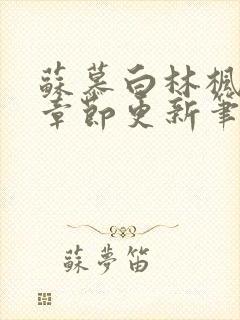 蘇慕白林楓
章節更新筆
蘇夢笛